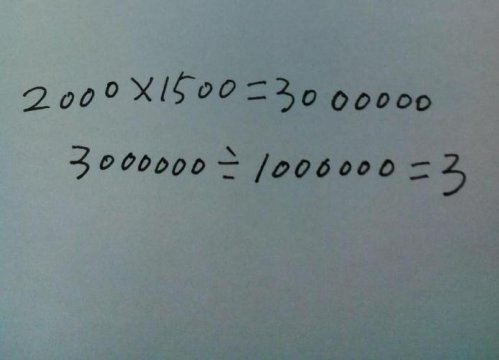 2000×1500=3000000
3000000÷1000000=3